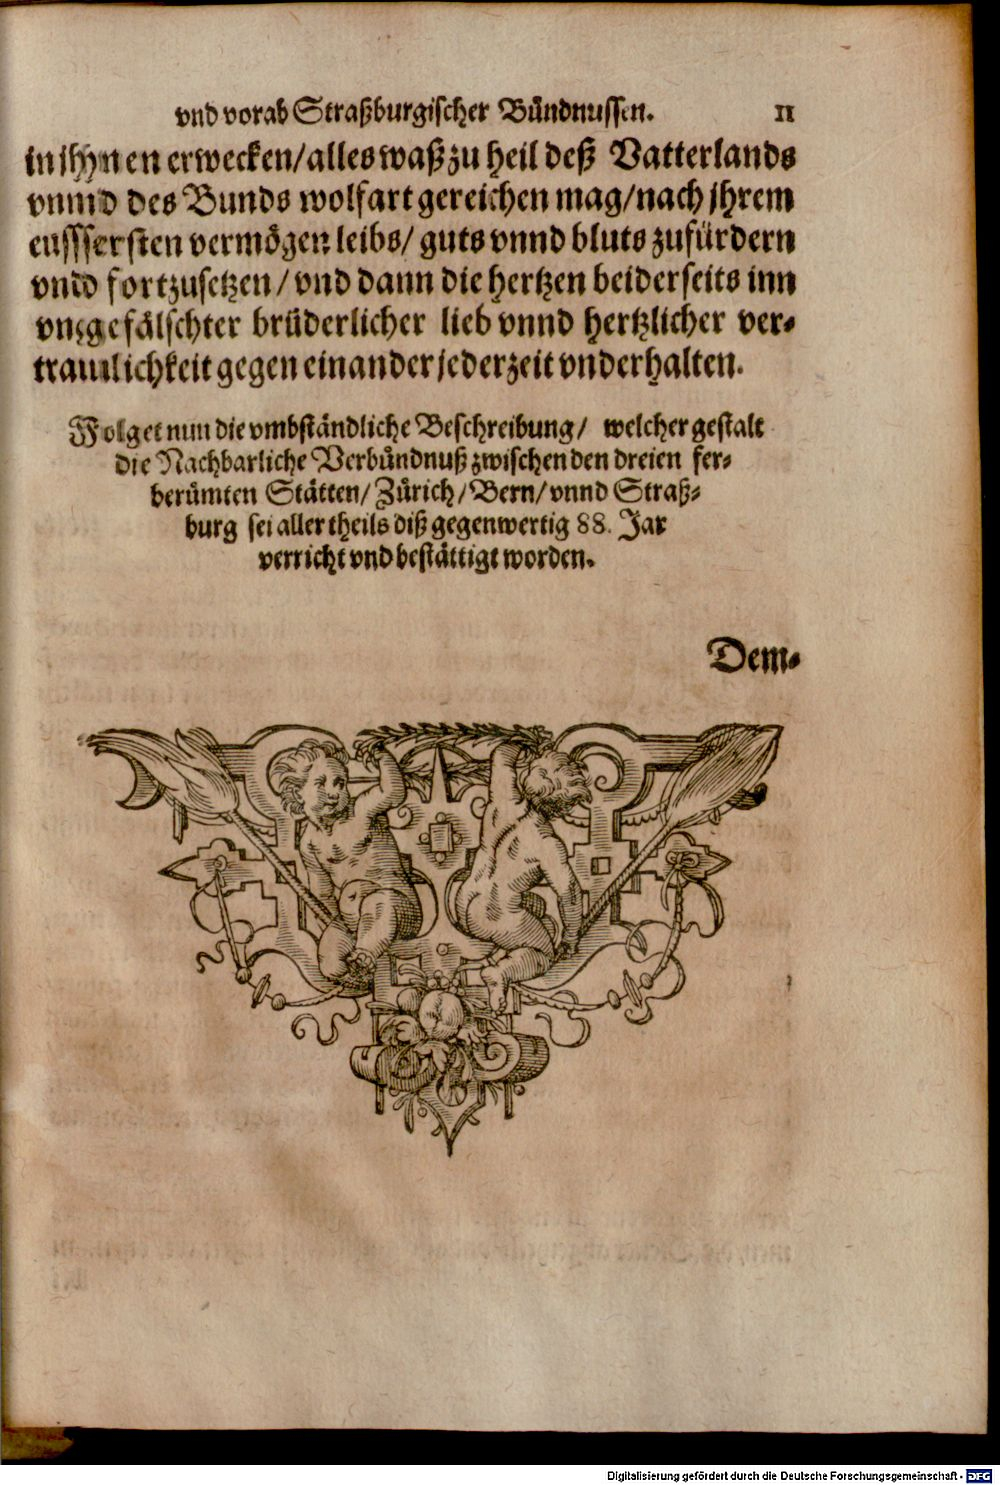 vnd vorab Straßburgischer Bündnussen. 11
in jhnen erwecken/alles waß zu heil deß Vatterlands
vnnd des Bunds wolfart gereichen mag/nach jhrem
eussersten vermögen leibs/ guts vnnd bluts zufürdern
vnd fortzusetzen/vnd dann die hertzen beiderseits inn
vngefälschter brüderlicher lieb vnnd hertzlicher ver-
traulichkeit gegen einander jederzeit vnderhalten.
Folget nun die vmbständliche Beschreibung/ welcher gestalt
die Nachbarliche Verbündnuß zwischen den dreien fer-
berümten Stätten/Zürich/Bern/vnnd Straß-
burg sei aller theils diß gegenwertig 88. Jar
verricht vnd bestättigt worden.
Dem-
Digitalisierung gefördert durch die Deutsche Forschungsgemeinschaft - DFG